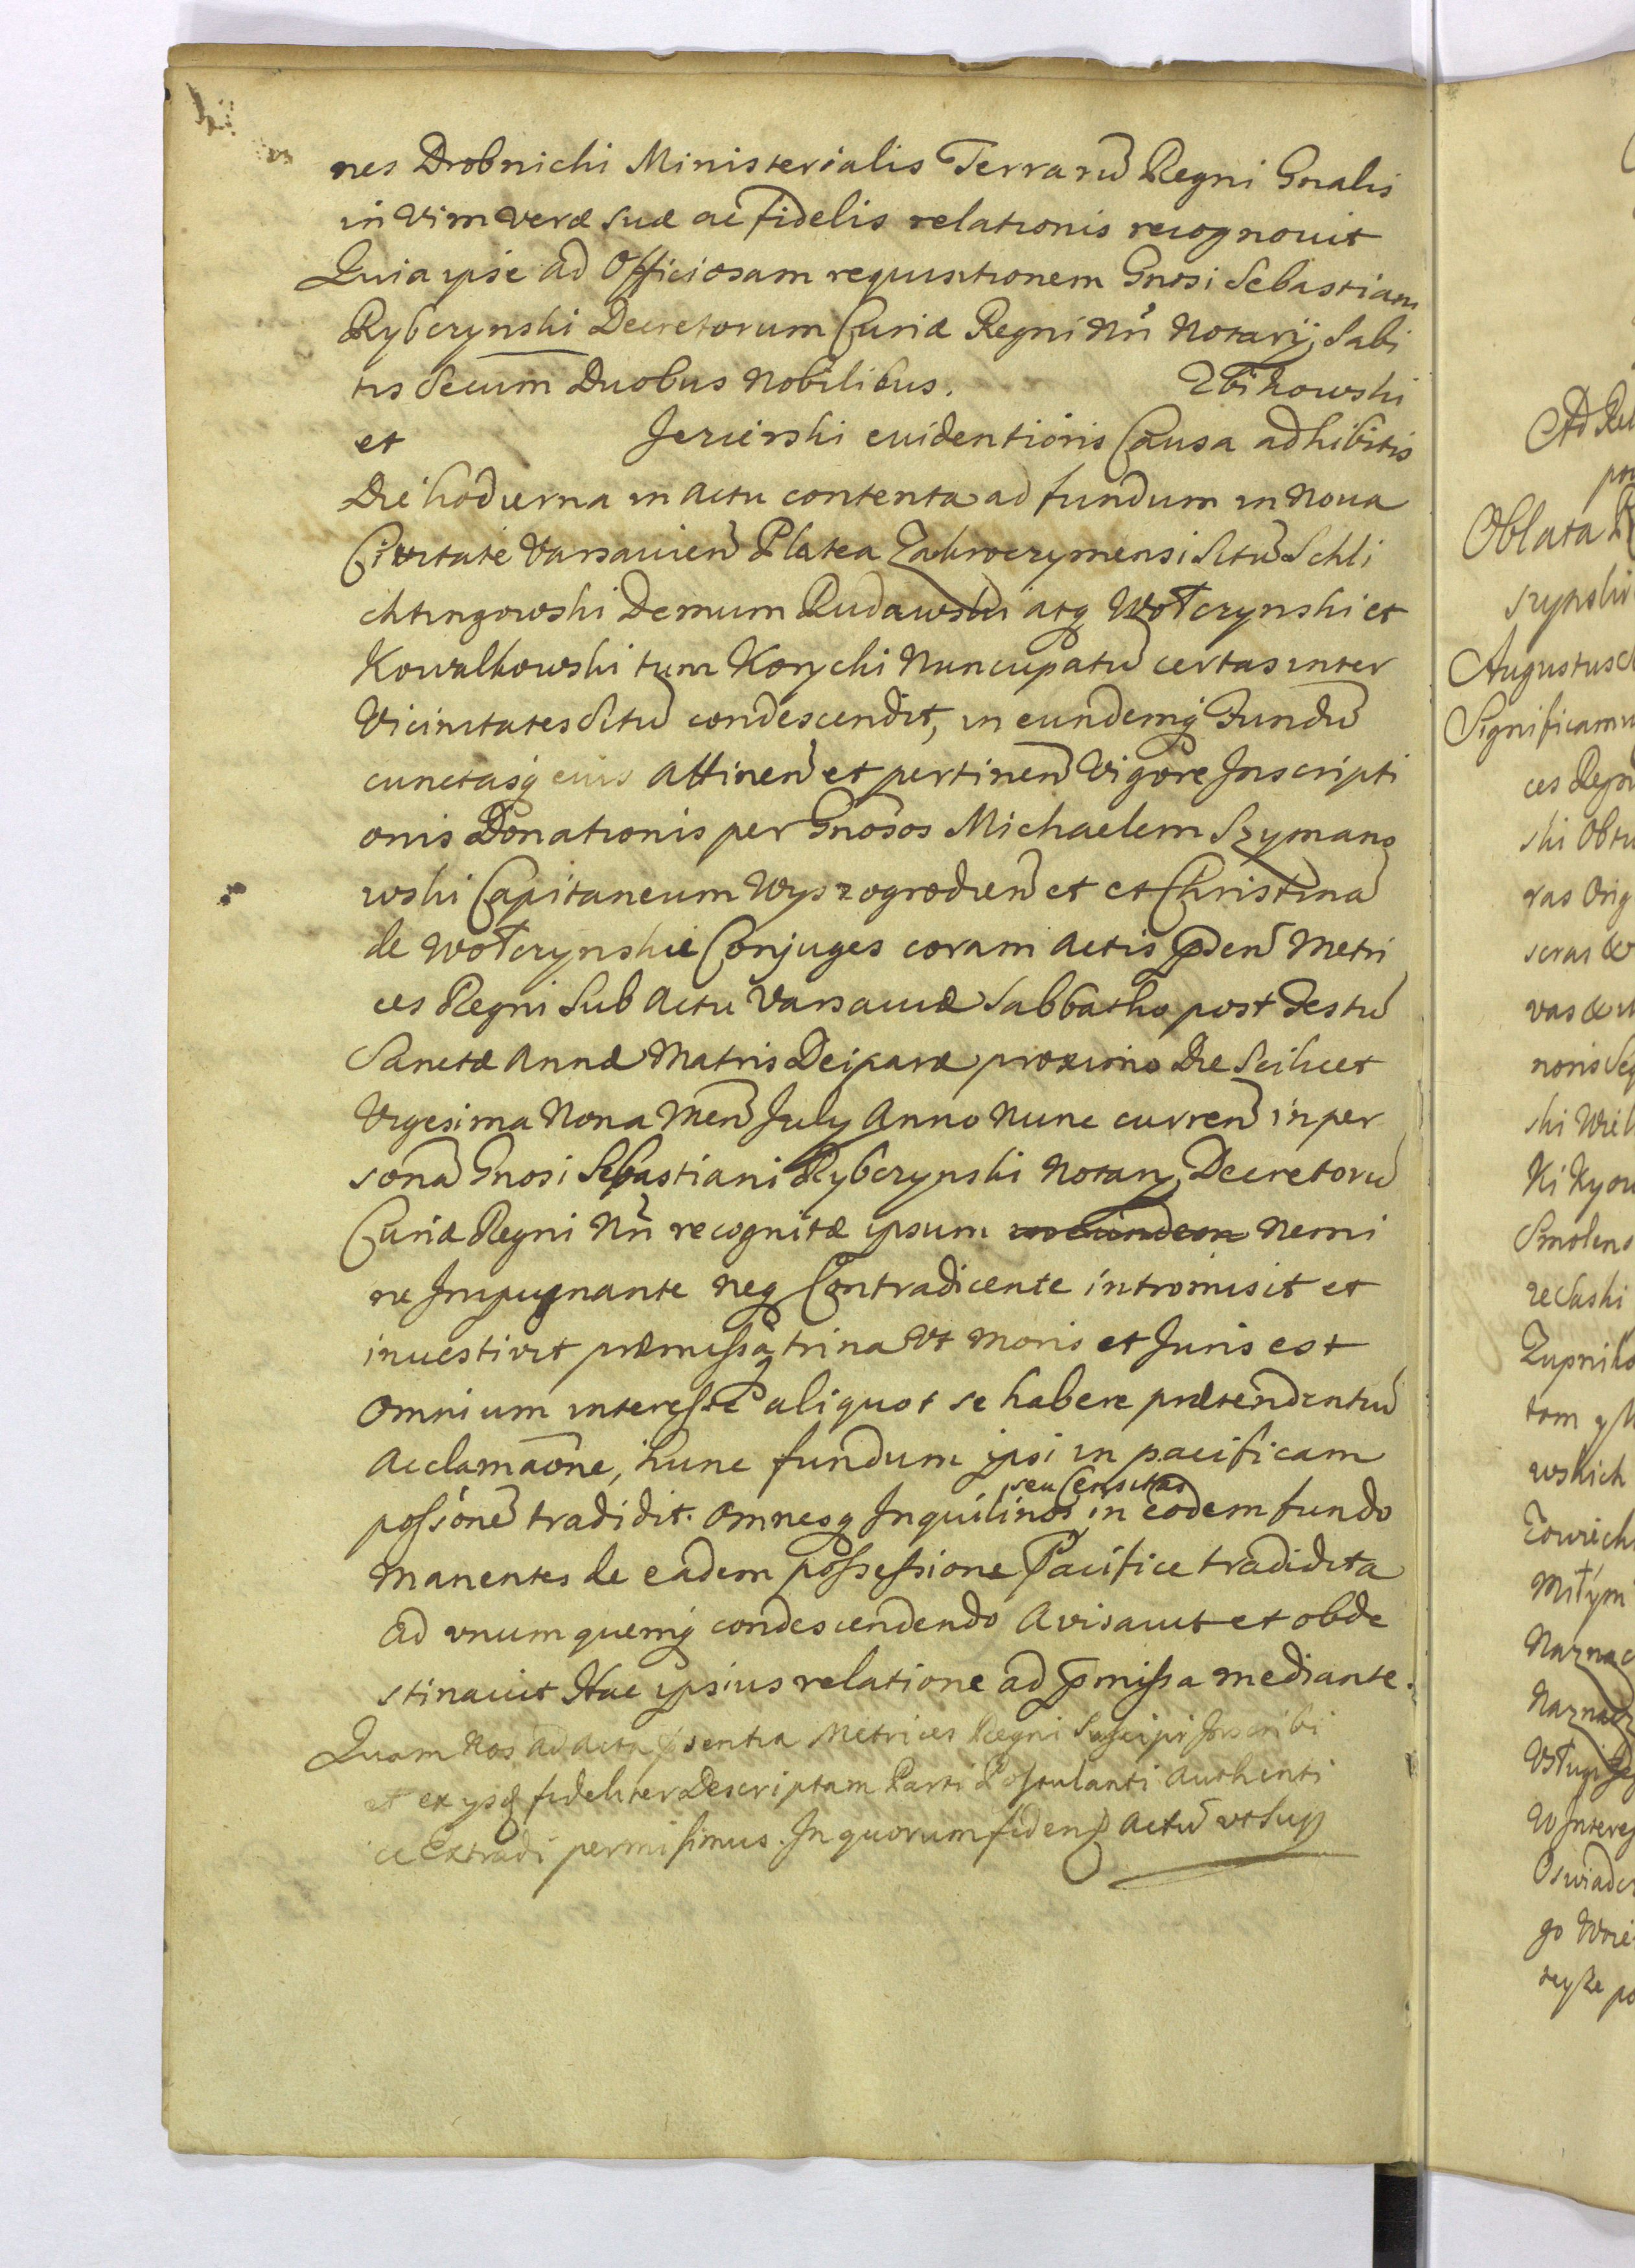 nes Drobnichi Ministerialis Terrarū Regni Gnalis
in Vim veræ suæ ac fidelis relationis recognouit
Quia ipse ad Officiosam requisitionem Gnosi Sebastiani
Rybczynski Decretorum Curiæ Regni Nrı̃ Notarij, habi
tis secum Duobus Nobilibus. Zbikowski
et Jezierski euidentioris Causa adhibitis
Die hodierna in actu contenta ad fundum in Noua
Civitate Varsavien̄ Platea Zakroczymensi Sitū Schli
chtingowski Demum Rudawski atq̨ Wołczynski et
Kowalkowski tum Korychi Nuncupatū certas inter
Vicinitates Sitū condescendit, in eundemq̨ Fundū
cunctasq̨ eius Attinen̄ et pertinen̄ Vigore Inscripti
onis Donationis per Gnosos Michaelem Szymano
wski Capitaneum Wyszogrodien̄ et et Christinā
de Wołczynskie Conjuges coram Actis p̄den̄ Metri
ces Regni Sub Actu Varsaviæ Sabbatho post Festū
Sanctæ Annæ Matris Deiparæ proximo Die Scilicet
Vigesima Nona Men̄ July Anno Nunc curren̄ in per
sonā Gnosi Sebastiani Rybczynski Notarij Decretorū
Curiæ Regni Nrı̃ recognitæ ipsum in eundem Nemi
ne Impugnante neq̨ Contradicente intromisit et
inuestivit præmissaq̨ trina Vt moris et Juris est
Omnium interesse aliquot se habere prætendentiū
Acclamaōne, hunc fundum ipsi in pacificam
possiōnē tradidit. Omnesq̨ Inquilinos seu Censitas in eodem fundo
Manentes de eadem possessione Pacifice tradidita
ad vnumquemq̨ condescendendo Avisauit et obde
stinauit Hac ipsius relatione ad p̄missa mediante.
Quam Nos ad Acta p̄sentia Metrices Regni Suscipi Inscribi
et ex ysq̨ fideliter Descriptam Parti Postulanti Authenti
ce Extradi permisimus. In quorum fidem Actū vt Sup
Ad Rel
Oblata R
Augustus
Significamu
ces Regn
ski Obtu
ras Orig
noris Seq
Smolens
zeckski
Zupniko
tom y
wskich
Towich